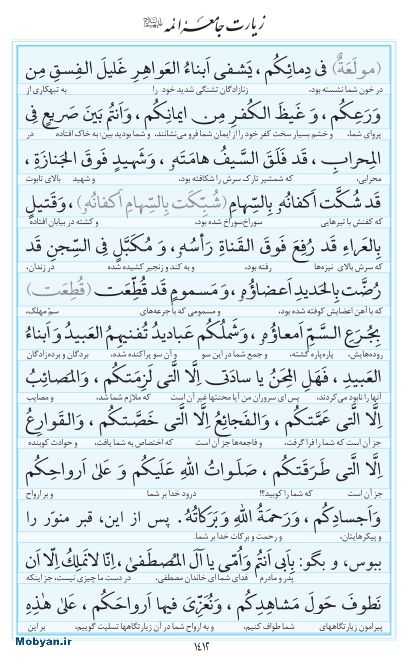 زیارت جامعهٔ ائمه علیهم‌السلام
(مولَعَةٌ) فی دِمائِکُم، یَشفی اَبناءُ العَواهِرِ غَلیلَ الفِسقِ مِن
در خون شما نشسته بود، زنازادگان تشنگی شدید خود را به تبهکاری از
وَرَعِکُم، وَ غَیظَ الکُفرِ مِن ایمانِکُم، وَ اَنتُم بَینَ صَریعٍ فِی
پروای شما، و خشم بسیار سخت کفر خود را از ایمان شما فرو می‌نشانند، و شما بودید بین: به خاک افتاده در
المِحرابِ، قَد فَلَقَ السَّیفُ هامَتَهُ، وَ شَهیدٍ فَوقَ الجَنازَةِ،
محرابی، که شمشیر تارک سرش را شکافته بود، و شهید بالای تابوت
قَد شُکَّت اَکفانُهُ بِالسِّهامِ (شُبِّکَت بِالسِّهامِ اَکفانُهُ)، وَ قَتیلٍ
که کفنش با تیرهایی سوراخ‌سوراخ شده بود، و کشته در بیابان افتاده
بِالعَراءِ قَد رُفِعَ فَوقَ القَناةِ رَأسُهُ، وَ مُکَبَّلٍ فِی السِّجنِ قَد
که سرش بالای نیزه‌ها رفته بود، و به کند و زنجیر کشیده شده در زندان،
رُضَّت بِالحَدیدِ اَعضاؤُهُ، وَ مَسمومٍ قَد قُطِّعَت (قُطِعَت)
که با آهن اعضایش کوفته شده بود، و مسمومی که با جرعه‌های سمّ مهلک،
بِجُرَعِ السَّمِّ اَمعاؤُهُ، وَ شَملُکُم عَبادیدُ تُفنیهِمُ العَبیدُ وَ اَبناءُ
روده‌هایش، پاره‌پاره گشته، و جمع شما در این سو و آن سو پراکنده شده، بردگان و برده‌زادگان
العَبیدِ، فَهَلِ المِحَنُ یا سادَتی اِلَّا الَّتی لَزِمَتکُم، وَ المَصائِبُ
آنها را نابود می‌کردند، پس ای سروران من آیا محنتها غیر آن است که ملازم شما شد، و مصایب
اِلَّا الَّتی عَمَّتکُم، وَ الفَجائِعُ اِلَّا الَّتی خَصَّتکُم، وَ القَوارِعُ
جز آن است که شما را فرا گرفت، و فاجعه‌ها جز آن است که اختصاص به شما یافت، و حوادث کوبنده
اِلَّا الَّتی طَرَقَتکُم، صَلَواتُ اللهِ عَلَیکُم وَ عَلیٰ اَرواحِکُم
جز آن است که شما را کوبید؟! درود خدا بر شما و بر ارواح
وَ اَجسادِکُم، وَ رَحمَةُ اللهِ وَ بَرَکاتُهُ. پس از این، قبر منوّر را
و پیکرهایتان، و رحمت و برکات خدا بر شما.
ببوس، و بگو: بِاَبی اَنتُم وَ اُمّی یا آلَ المُصطَفیٰ، اِنّا لانَملِکُ اِلّا اَن
پدر و مادرم فدای شما ای خاندان مصطفی، در دست ما چیزی نیست، جز اینکه
نَطوفَ حَولَ مَشاهِدِکُم، وَ نُعَزِّیَ فیها اَرواحَکُم، عَلیٰ هٰذِهِ
پیرامون زیارتگاههای شما طواف کنیم، و به ارواح شما در آن زیارتگاهها تسلیت گوییم، بر این
۱۴۱۲
Mobyan.ir